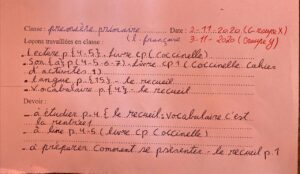 Classe : première primaire Date : 2-11-2020 (Groupe X)
Leçons travaillées en classe : (le français) 3-11-2020 (Groupe Y)
- Lecture p (4-5) - livre CP (Coccinelle)
- Son (a) p (4-5-6-7) - livre CP 1 (Coccinelle Cahier
d'activités 1)
- Langue p. (15) - le recueil
- Vocabulaire p (4) - le recueil
Devoir :
- à étudier p.4 { le recueil : vocabulaire c'est
la rentrée }
- à lire p.4-5 (livre CP Coccinelle)
- à préparer comment se présenter - le recueil p.1